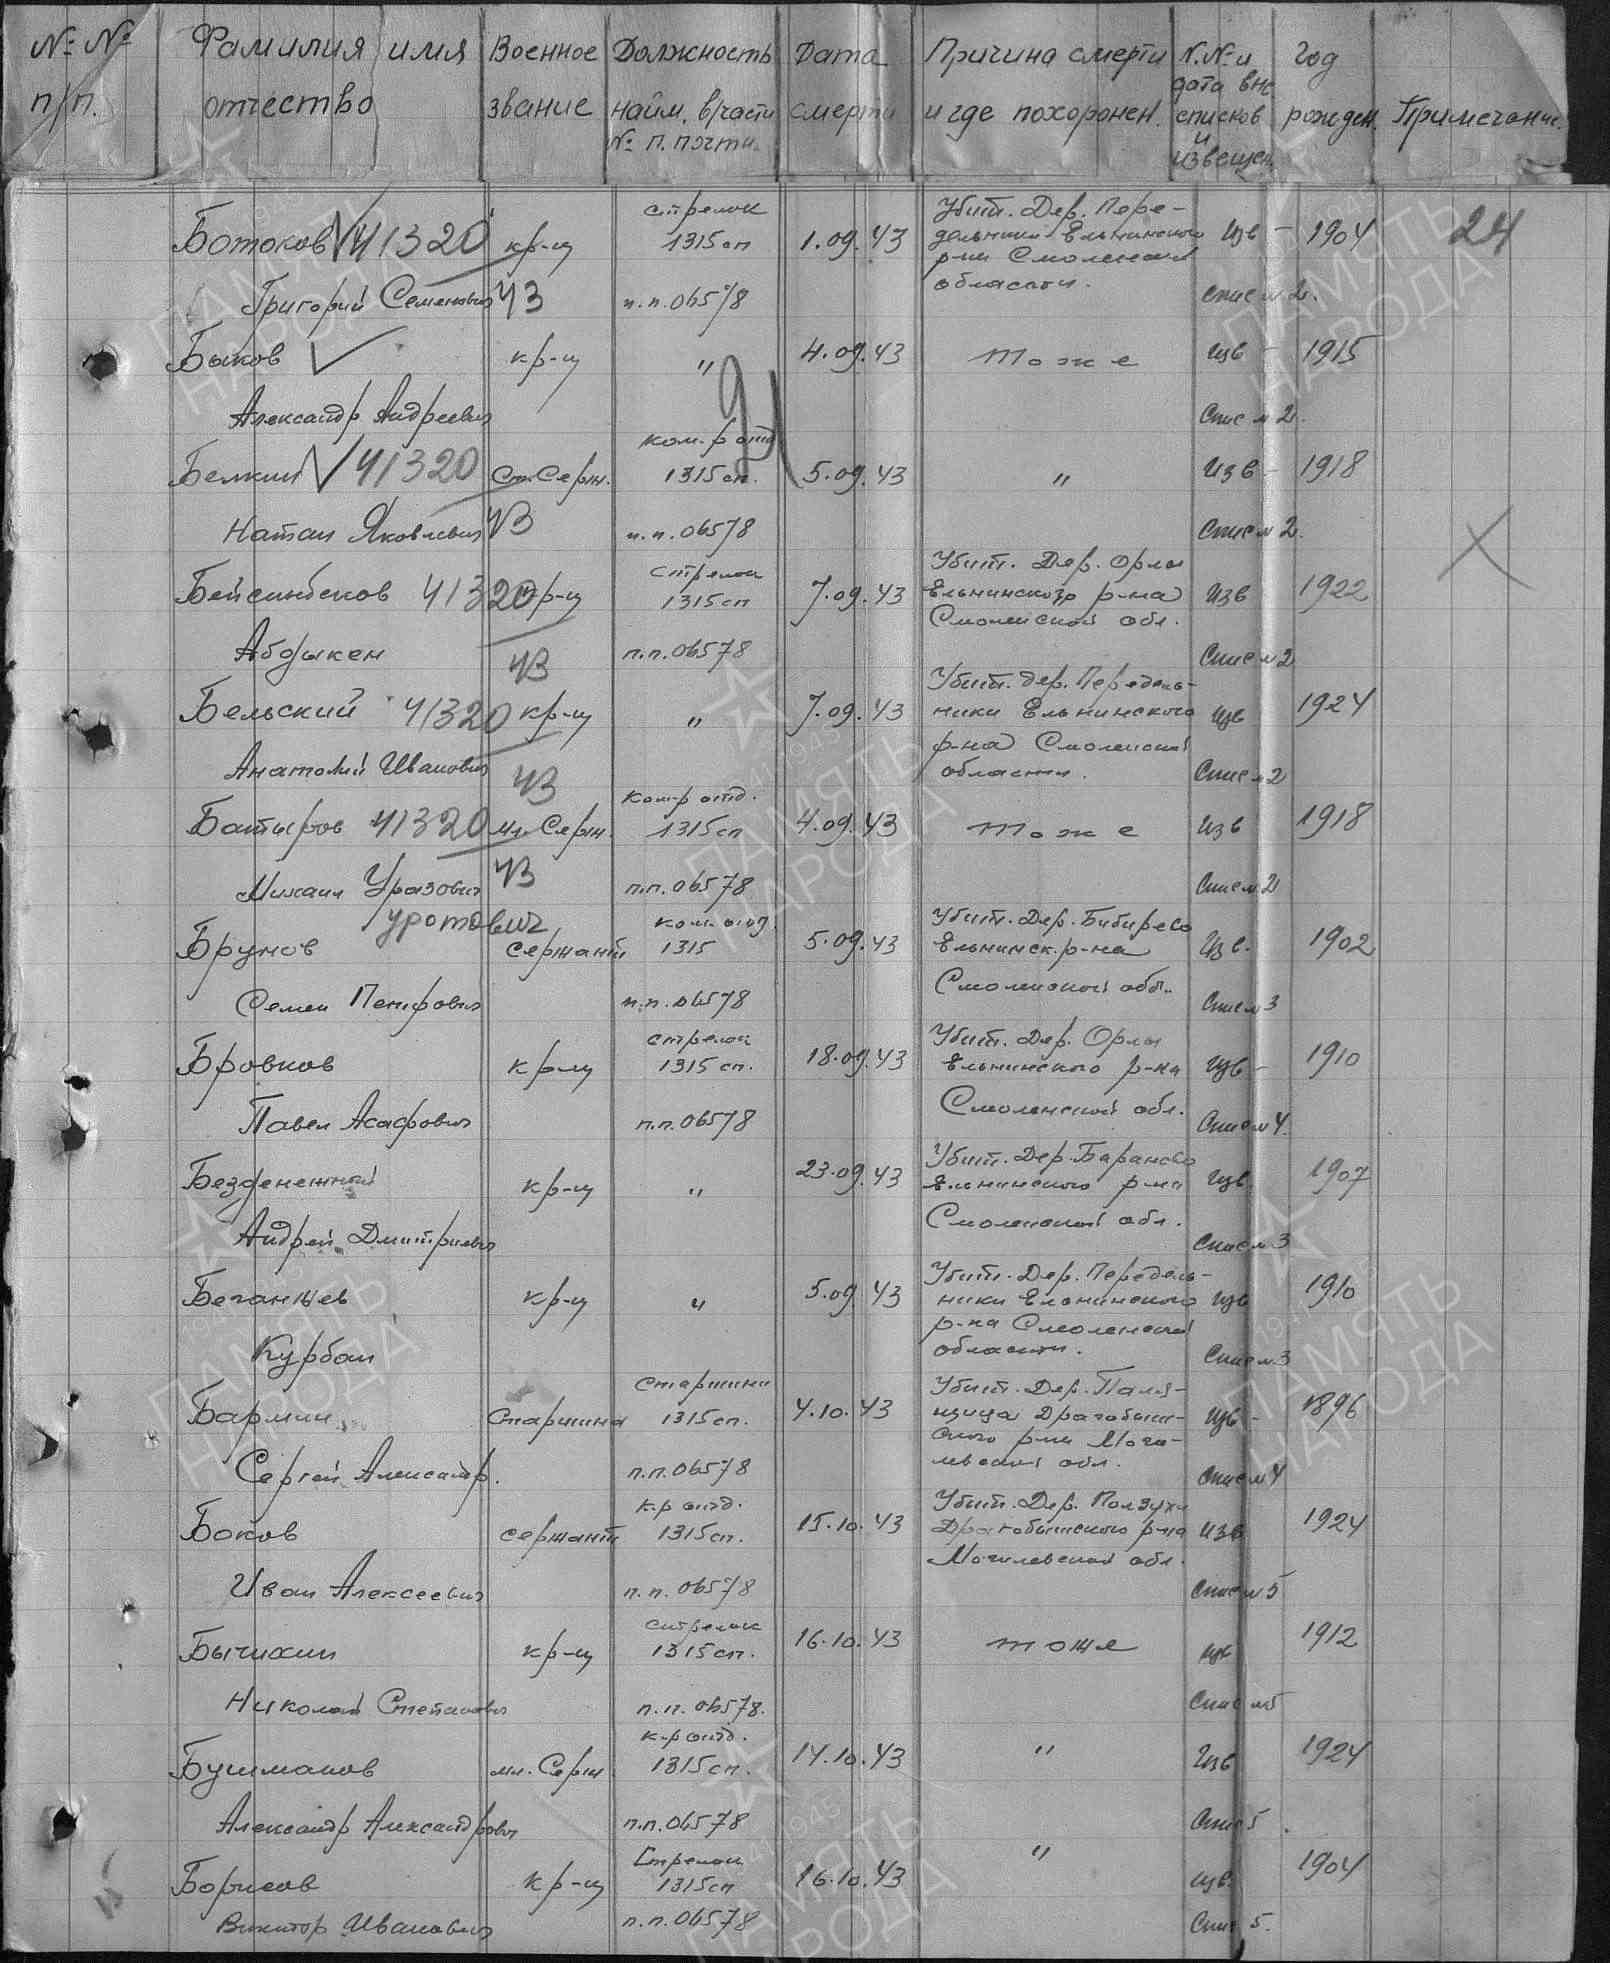 № №
п/п.
Фамилия имя
отчество
Военное
звание
Должность
найм. в/части
№ п. почты.
Дата
смерти
Причина смерти
и где похоронен.
N.№ и
дата вне
списков
и
извещен.
Год
рожден.
Примечание.
Ботоков 41320 кр-ц стрелок 1315 сп 1.09.43 Убит. Дер. Пере-
дельники Ельнинского
р-на Смоленской
области. Изв - 1904 24
Григорий Семенович ЧЗ п.п. 06578 спис № 2.
Быков кр-ц " 4.09.43 тоже изв - 1915
Александр Андреевич Спис № 2.
Белкин 41320 Ст. Серж. ком-р отд 1315 сп. 5.09.43 " Изв - 1918
Натан Яковлевич ЧЗ п.п. 06578 Спис № 2.
Бейсинбеков 41320 кр-ц Стрелок 1315 сп 7.09.43 Убит. Дер. Орлы
Ельнинского р-на
Смоленской обл. Изв 1922
Абдыкен ЧЗ п.п. 06578 Спис № 2
Бельский 41320 кр-ц " 7.09.43 Убит. Дер. Передель-
ники Ельнинского
р-на Смоленской
области. изв 1924
Анатолий Иванович ЧЗ Спис № 2
Батыров 41320 мл. Серж. ком-р отд. 1315 сп 4.09.43 тоже Изв 1918
Михаил Уразович ЧЗ п.п. 06578 Спис № 2
уротович
Брунов сержант ком. отд. 1315 5.09.43 Убит. Дер. Бибирево
Ельнинск. р-на
Смоленской обл. Изв. 1902
Семен Петрович п.п. 06578 Спис № 3
Бровков кр-ц стрелок 1315 сп. 18.09.43 Убит. Дер. Орлы
Ельнинского р-на
Смоленской обл. изв - 1910
Павел Асафович п.п. 06578 Спис № 4.
Безденежный кр-ц " 23.09.43 Убит. Дер. Бараново
Ельнинского р-на
Смоленской обл. изв. 1907
Андрей Дмитриевич Спис № 3
Беганцев кр-ц " 5.09.43 Убит. Дер. Передель-
ники Ельнинского
р-на Смоленской
области. изв 1910
Курбан Спис № 3
Бармин Старшина старшина 1315 сп. 4.10.43 Убит. Дер.
р-на Моги-
левской обл. изв - 1896
Сергей Александр. п.п. 06578 Спис № 4
Боков сержант к-р отд. 1315 сп. 15.10.43 Убит. Дер. Ползухи
Драгобынского р-на
Могилевской обл. Изв 1924
Иван Алексеевич п.п. 06578 Спис № 5
Бычихин кр-ц стрелок 1315 сп. 16.10.43 тоже изв 1912
Николай Степанович п.п. 06578. Спис № 5
Бушманов мл. Серж к-р отд. 1315 сп. 14.10.43 " Изв 1924
Александр Александрович п.п. 06578 Спис 5
Борисов кр-ц Стрелок 1315 сп 16.10.43 " изв. 1904
Виктор Иванович п.п. 06578 Спис 5.
ПАМЯТЬ
НАРОДА